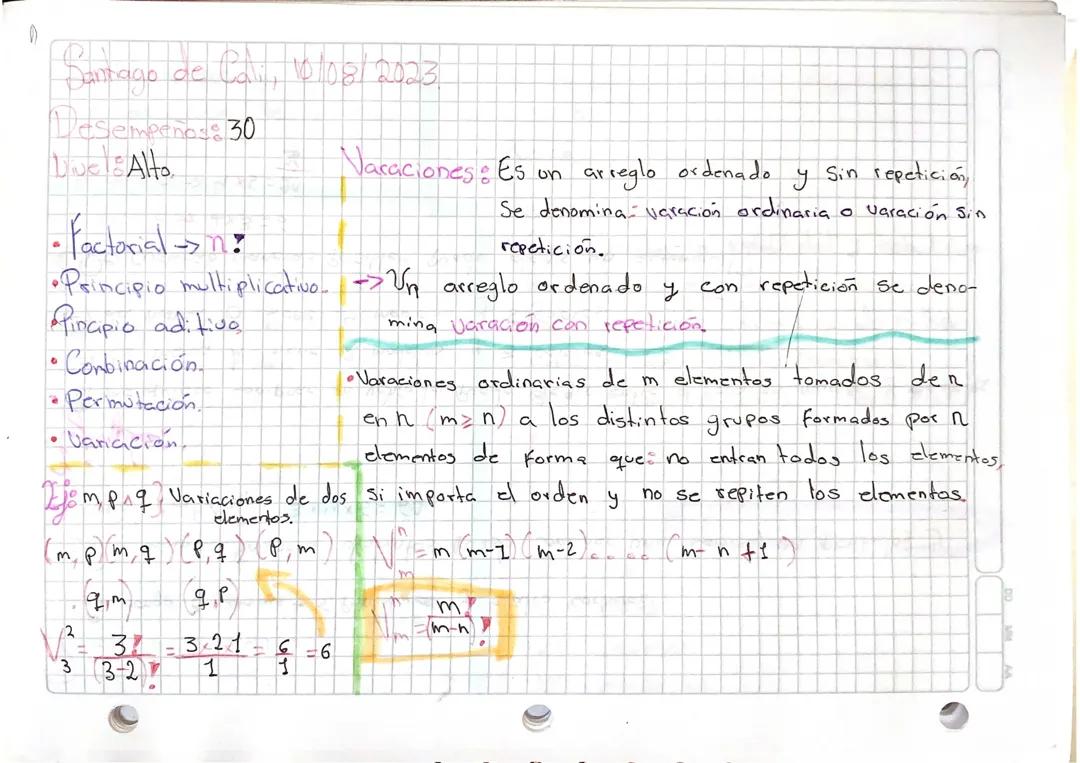 Santago de Cali, 10/08/2023.
Desempeños: 30
Nivel: Alto.
• Factorial -> n!
• Principio multiplicativo.
• Pincipio aditivo.
• Conbinación.
• Permutación.
• Variación.
Varaciones: Es un arreglo ordenado y sin repetición,
Se denomina: varación ordinaria o varación sin
repetición.
-> Un arreglo ordenado y con repetición se deno-
mina varación con repetición.
• Varaciones ordinarias de m elementos tomados de n
en n (m≥n) a los distintos grupos formados por n
elementos de forma que: no entran todos los elementos,
si importa el orden y no se repiten los elementos.
Ej: m, p ∧ q } Variaciones de dos
elementos.
(m, p) (m, q) (p, q) (p, m)
(q, m) (q, p)
V₃² = 3!/(3-2)! = 3·2·1/1 = 6/1 = 6
Vₘⁿ = m (m-1) (m-2)..... (m-n+1)
Vₘⁿ = m!/(m-n)!